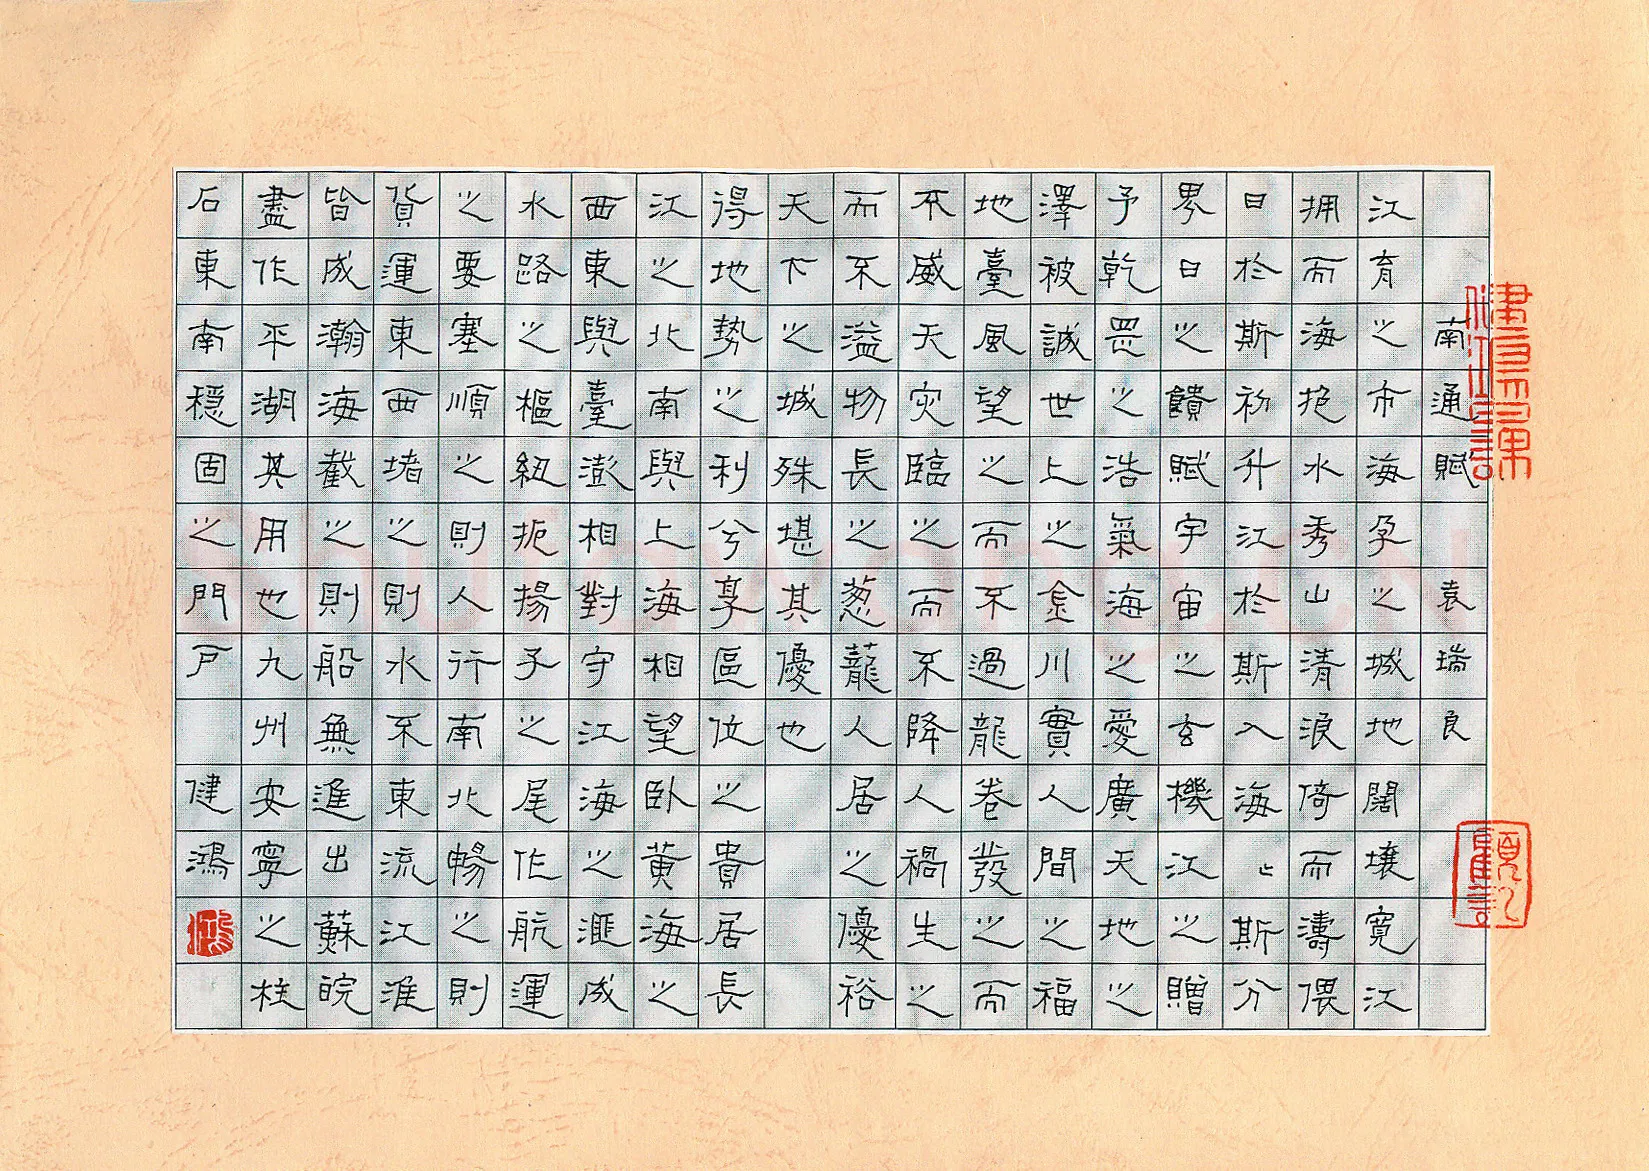 南通賦 袁瑞良
江育之市海孕之城地闊壤寬江
拥而海抱水秀山清浪倚而濤偎
日於斯初升江於斯入海〻斯分
界日之饋賦宇宙之玄機江之贈
予乾罡之浩氣海之愛廣天地之
澤被誠世上之金川實人間之福
地臺風望之而不過龍卷發之而
不威天灾臨之而不降人禍生之
而不溢物長之葱蘢人居之優裕
天下之城殊堪其優也
得地勢之利兮享區位之貴居長
江之北南與上海相望卧黄海之
西東與臺澎相對守江海之滙成
水路之樞紐扼揚子之尾作航運
之要塞順之則人行南北暢之則
貨運東西堵之則水不東流江淮
皆成瀚海截之則船無進出蘇皖
盡作平湖其用也九州安寧之柱
石東南穩固之門戶 健鴻